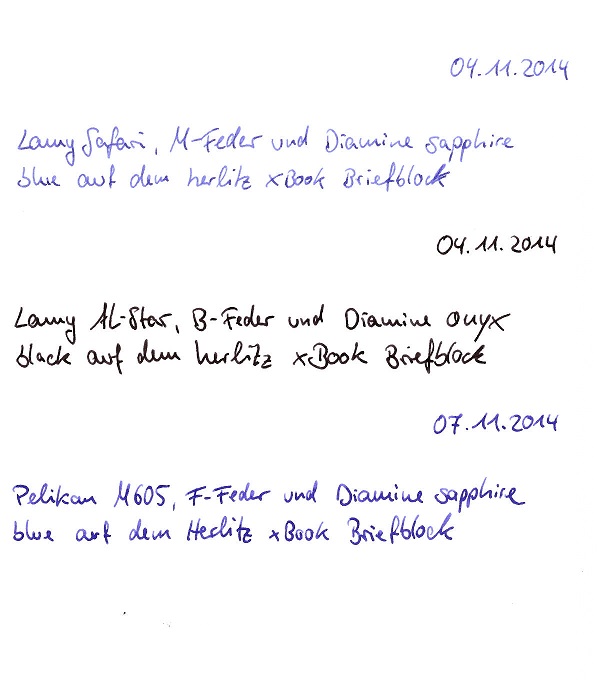 04.11.2014
Lamy Safari, M-Feder und Diamine sapphire
blue auf dem herlitz xBook Briefblock
04.11.2014
Lamy AL-Star, B-Feder und Diamine onyx
black auf dem herlitz xBook Briefblock
07.11.2014
Pelikan M605, F-Feder und Diamine sapphire
blue auf dem Herlitz xBook Briefblock